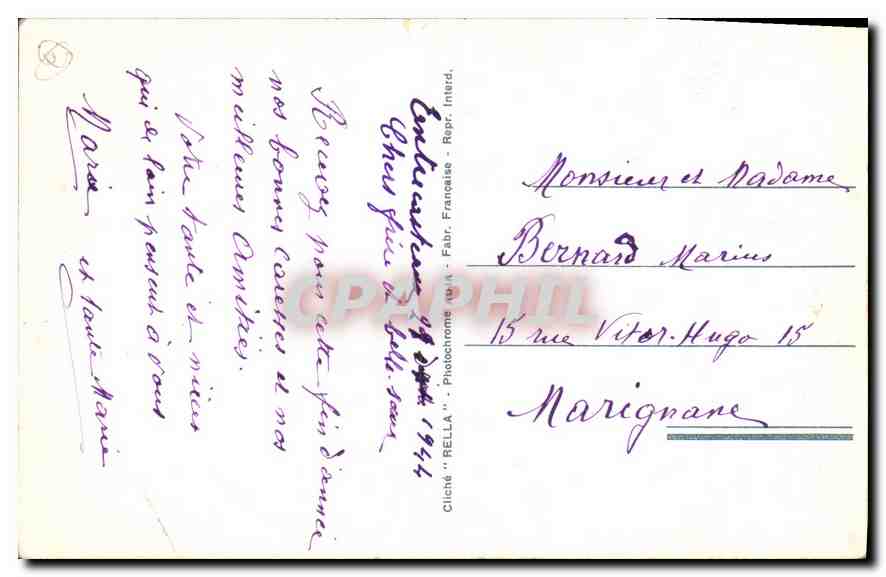 Entrecasteaux 29 1944
Chers frère et belle-sœur
Recevez pour cette fin d'année
nos bonnes caresses et nos
meilleures amitiés.
Votre tante et nièce
qui de loin pensent à vous
Marie et tante Marie
Cliché "RELLA" - Photochrome - Fabr. Française - Repr. Interd.
Monsieur et Madame
Bernard Marius
15 rue Vitor-Hugo 15
Marignane
CPAPHIL